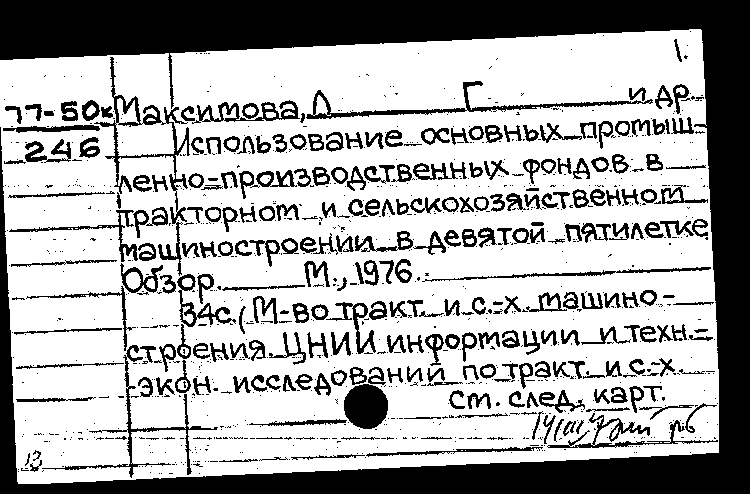 1.
77-50к Максимова, Л Г и др
246 Использование основных промыш-
ленно-производственных фондов в
тракторном и сельскохозяйственном
машиностроении в девятой пятилетке
Обзор. М., 1976.
34с. (М-во тракт. и с.-х. машино-
строения. ЦНИИ информации и техн.-
-экон. исследований по тракт. и с.-х.
См. след. карт.
13